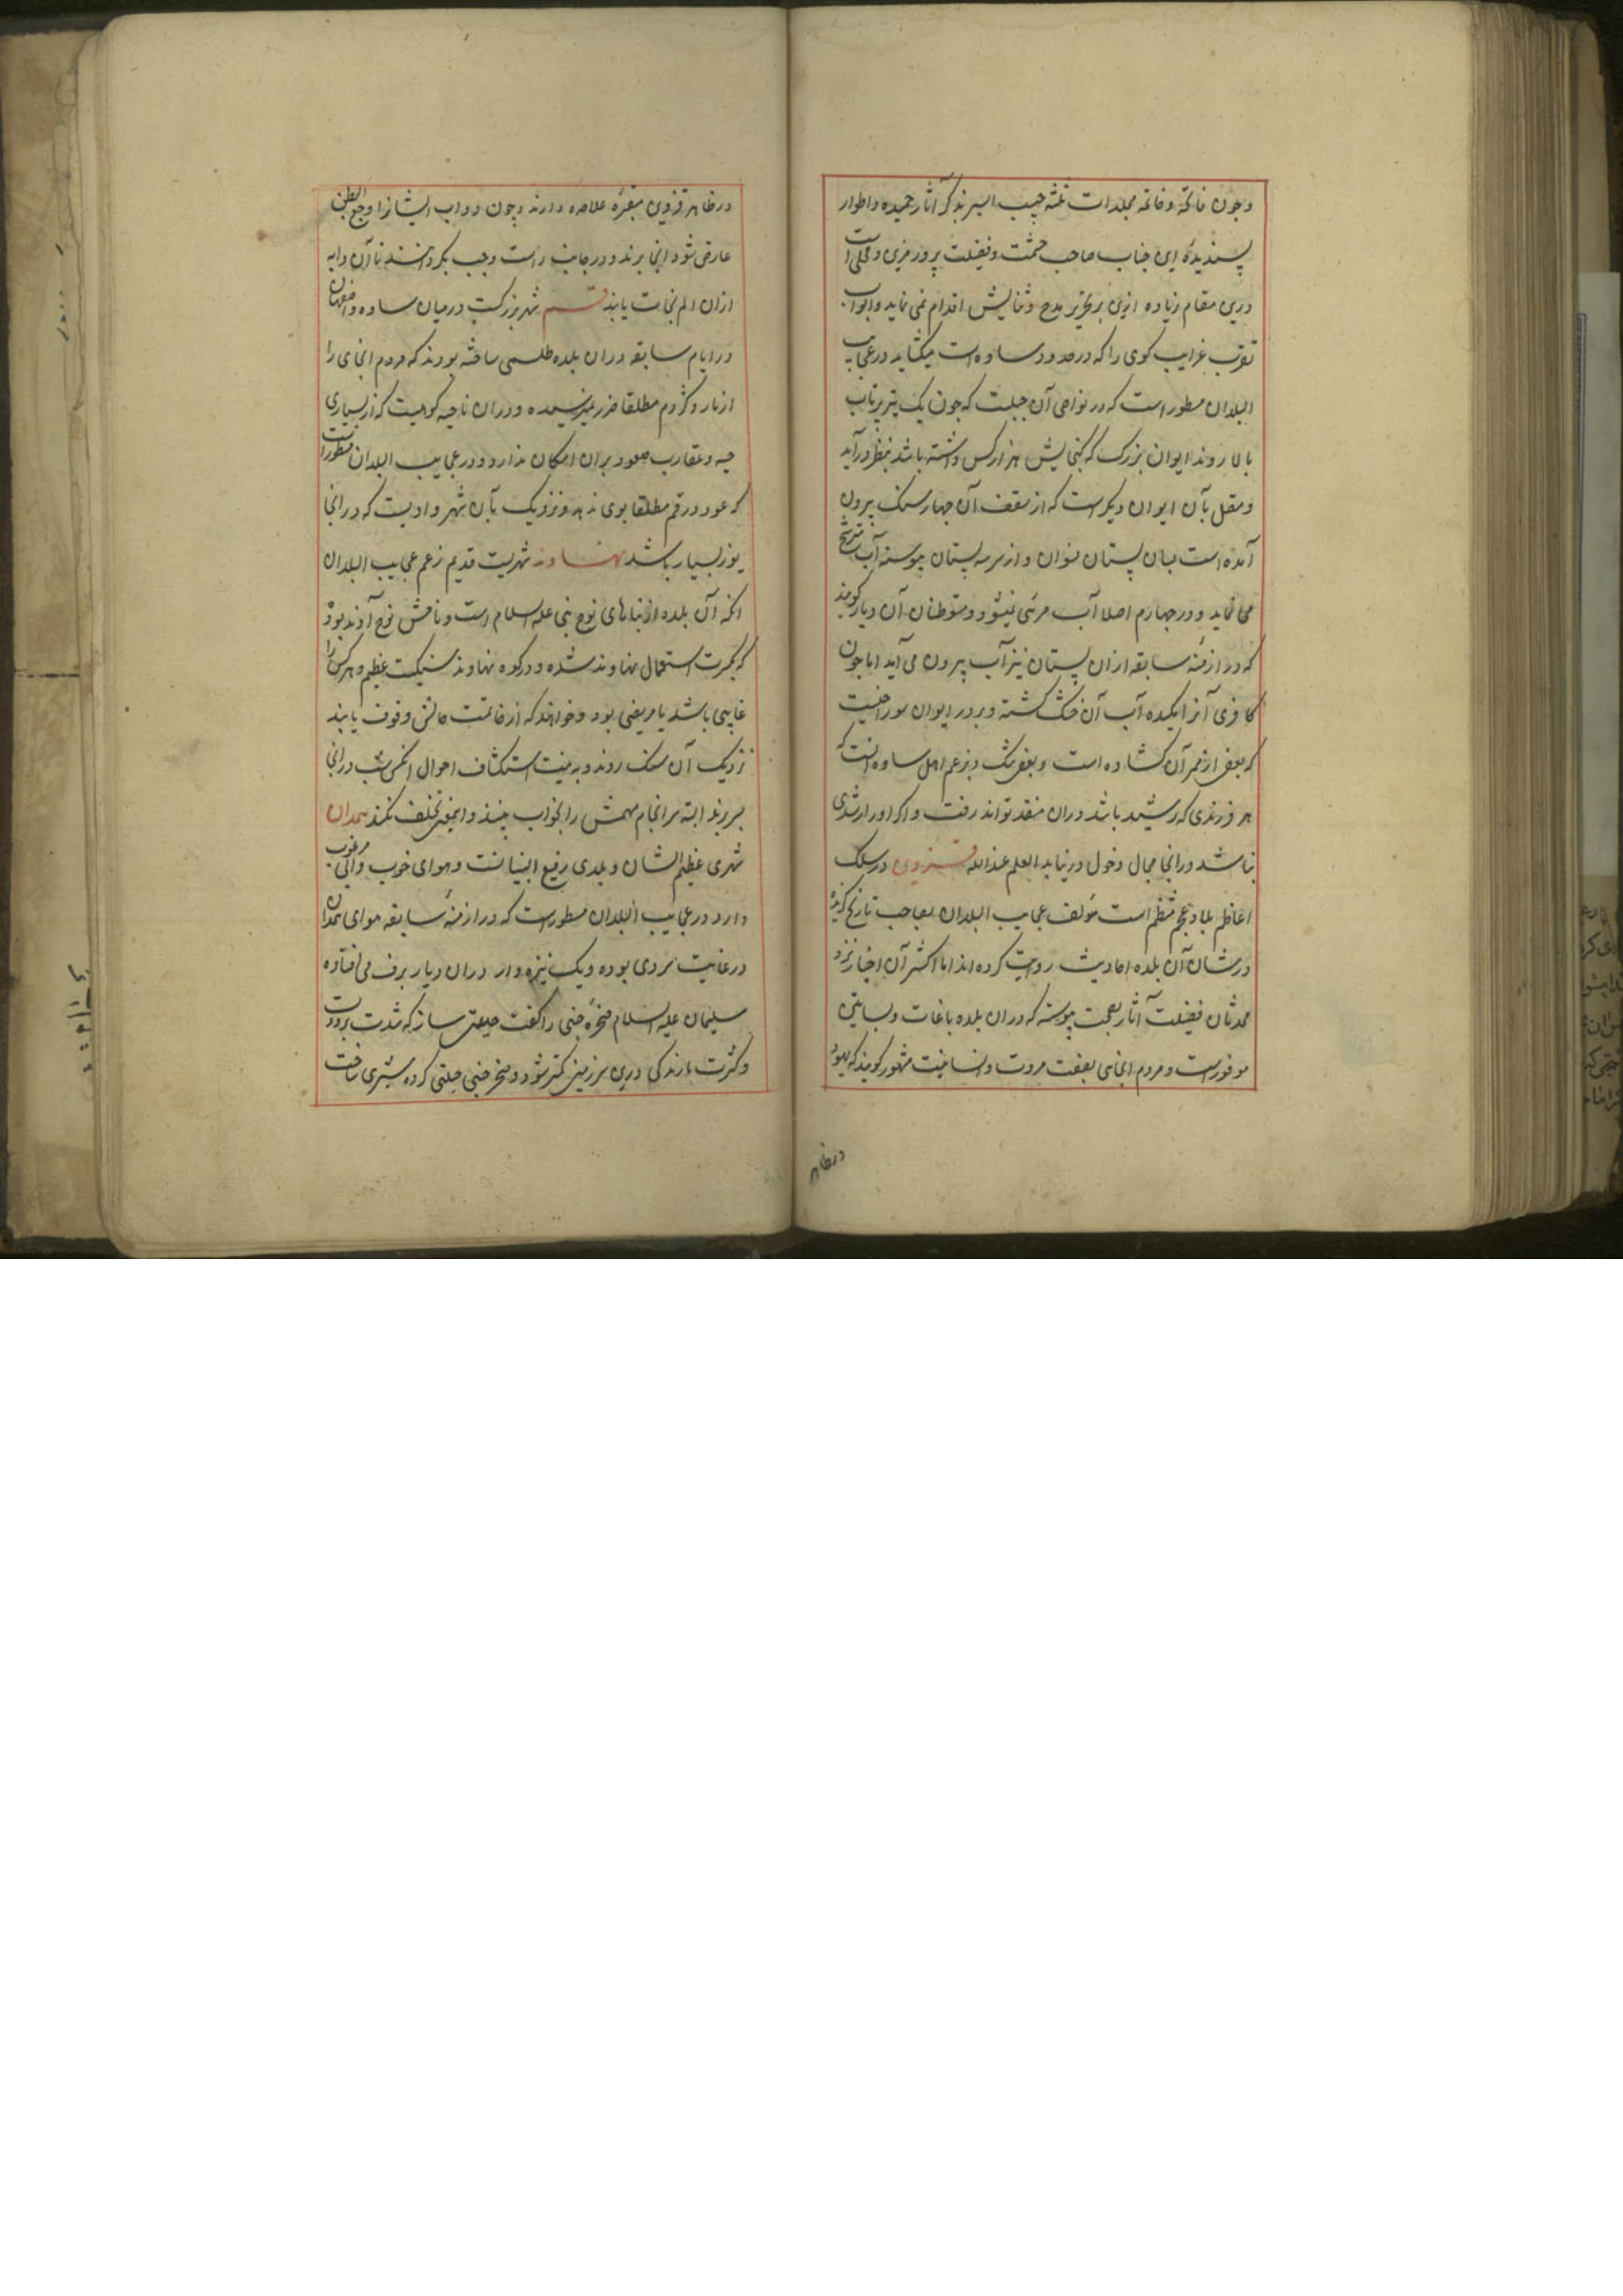 و چون فاتحه و خاتمه مجلدات ثلثه حبیب السیر بذکر آثار حمیده و اطوار
پسندیدهٔ این جناب صاحب حشمت و فضیلت پرور مزین و محلی است
درین مقام زیاده ازین بر تحریر مدح و ثنایش اقدام نمی نماید و ابواب
غرایب کوهی را که در حدود ساوه است میگشاید در عجایب
البلدان مسطور است که در نواحی آن جبلیست که چون یک تیر پرتاب
بالا روند ایوان بزرگ که گنجایش هزار کس داشته باشد بنظر درآید
و متصل بآن ایوان دیگر است که از سقف آن چهار سنگ بیرون
آمده است بسان پستان نسوان و از سر سه پستان پیوسته آب مترشح
می نماید و در چهارم اصلا آب مرئی نمیشود و متوطنان آن دیار گویند
که در ازمنهٔ سابقه ازان پستان نیز آب بیرون می آید اما چون
کافری آنرا مکیده آب آن خشک گشته و بر در ایوان سوراخیست
که بعضی از ممر آن گشاده است و بعضی تنگ و بزعم اهل ساوه آنست که
هر فرزندی که رشید باشد دران منفذ تواند رفت و اگر اورا رشدی
نباشد در آنجا مجال دخول در نیابد العلم عند الله قزوین در سلک
اعاظم بلاد عجم منتظم است مؤلف عجایب البلدان صاحب تاریخ گزیده
در شان آن بلده احادیث روایت کرده اند اما اکثر آن اخبار نزد
محدثان فضیلت آثار بصحت پیوسته که دران بلده باغات و بساتین
موفور است و مردم آنجا بصفت مروت و انسانیت مشهور گویند که یهود
در ظاهر
در ظاهر قزوین مقبرهٔ علاحده دارند و چون دواب ایشانرا وجع البطن
عارض شود آنجا برند و در جانب راست و چپ بگردانند تا آن دابه
ازان الم نجات یابد قم شهر بزرگست درمیان ساوه و اصفهان
در ایام سابقه دران بلده طلسمی ساخته بودند که مردم آنجای را
از مار و کژدم مطلقا ضرر نمیرسیده و دران ناحیه کوهیست که از بسیاری
حیه و عقارب صعود بران امکان ندارد و در عجایب البلدان مسطور است
که عود در قم مطلقا بوی ندهد و نزدیک بآن شهر وادیست که در آنجا
یوز بسیار باشد نهاوند شهریست قدیم بزعم عجایب البلدان
آنکه آن بلده از بناهای نوح نبی علیه السلام است و نامش نوح آوند بوده
که بکثرت استعمال نهاوند شده و در کوه نهاوند سنگیست عظیم و هر کس را
غایبی باشد یا مریضی بود و خواهند که از خاتمت حالش وقوف یابند
نزدیک آن سنگ روند و به نیت استکشاف احوال آنکس شب در آنجا
بسر برند البته سرانجام مهمش را بخواب بینند و این معنی تخلف نکند همدان
شهری عظیم الشان و بلدی رفیع البنیانست و هوای خوب و آبی مرغوب
دارد در عجایب البلدان مسطور است که در ازمنهٔ سابقه هوای همدان
در غایت سردی بوده و یک نیزه وار دران دیار برف می افتاده
سلیمان علیه السلام صخرهٔ جنی را گفت حیلتی ساز که شدت برودت
و کثرت بارندگی درین سرزمین کمتر شود و صخر جنی حیلتی کرده شیری ساخت